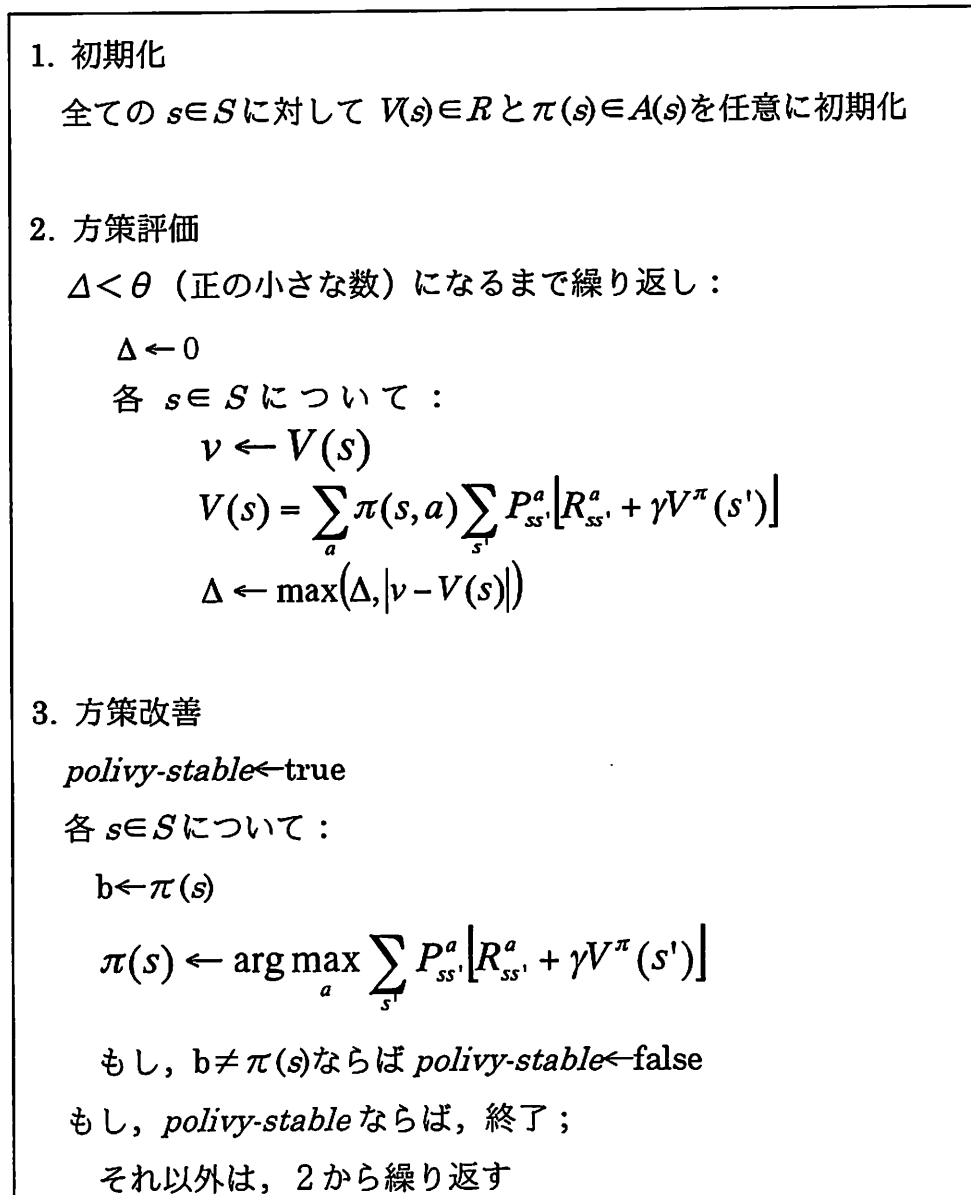 1. 初期化
全ての s∈Sに対して V(s)∈Rとπ(s)∈A(s)を任意に初期化
2. 方策評価
Δ<θ（正の小さな数）になるまで繰り返し：
Δ←0
各 s∈ S について：
v ← V(s)
V(s) = ∑_a π(s,a) ∑_{s'} P^a_{ss'} ⌊R^a_{ss'} + γV^π(s')⌋
Δ ← max(Δ,|v − V(s)|)
3. 方策改善
polivy-stable←true
各 s∈Sについて：
b←π(s)
π(s) ← arg max_a ∑_{s'} P^a_{ss'} ⌊R^a_{ss'} + γV^π(s')⌋
もし，b≠π(s)ならば polivy-stable←false
もし，polivy-stable ならば，終了；
それ以外は，２から繰り返す